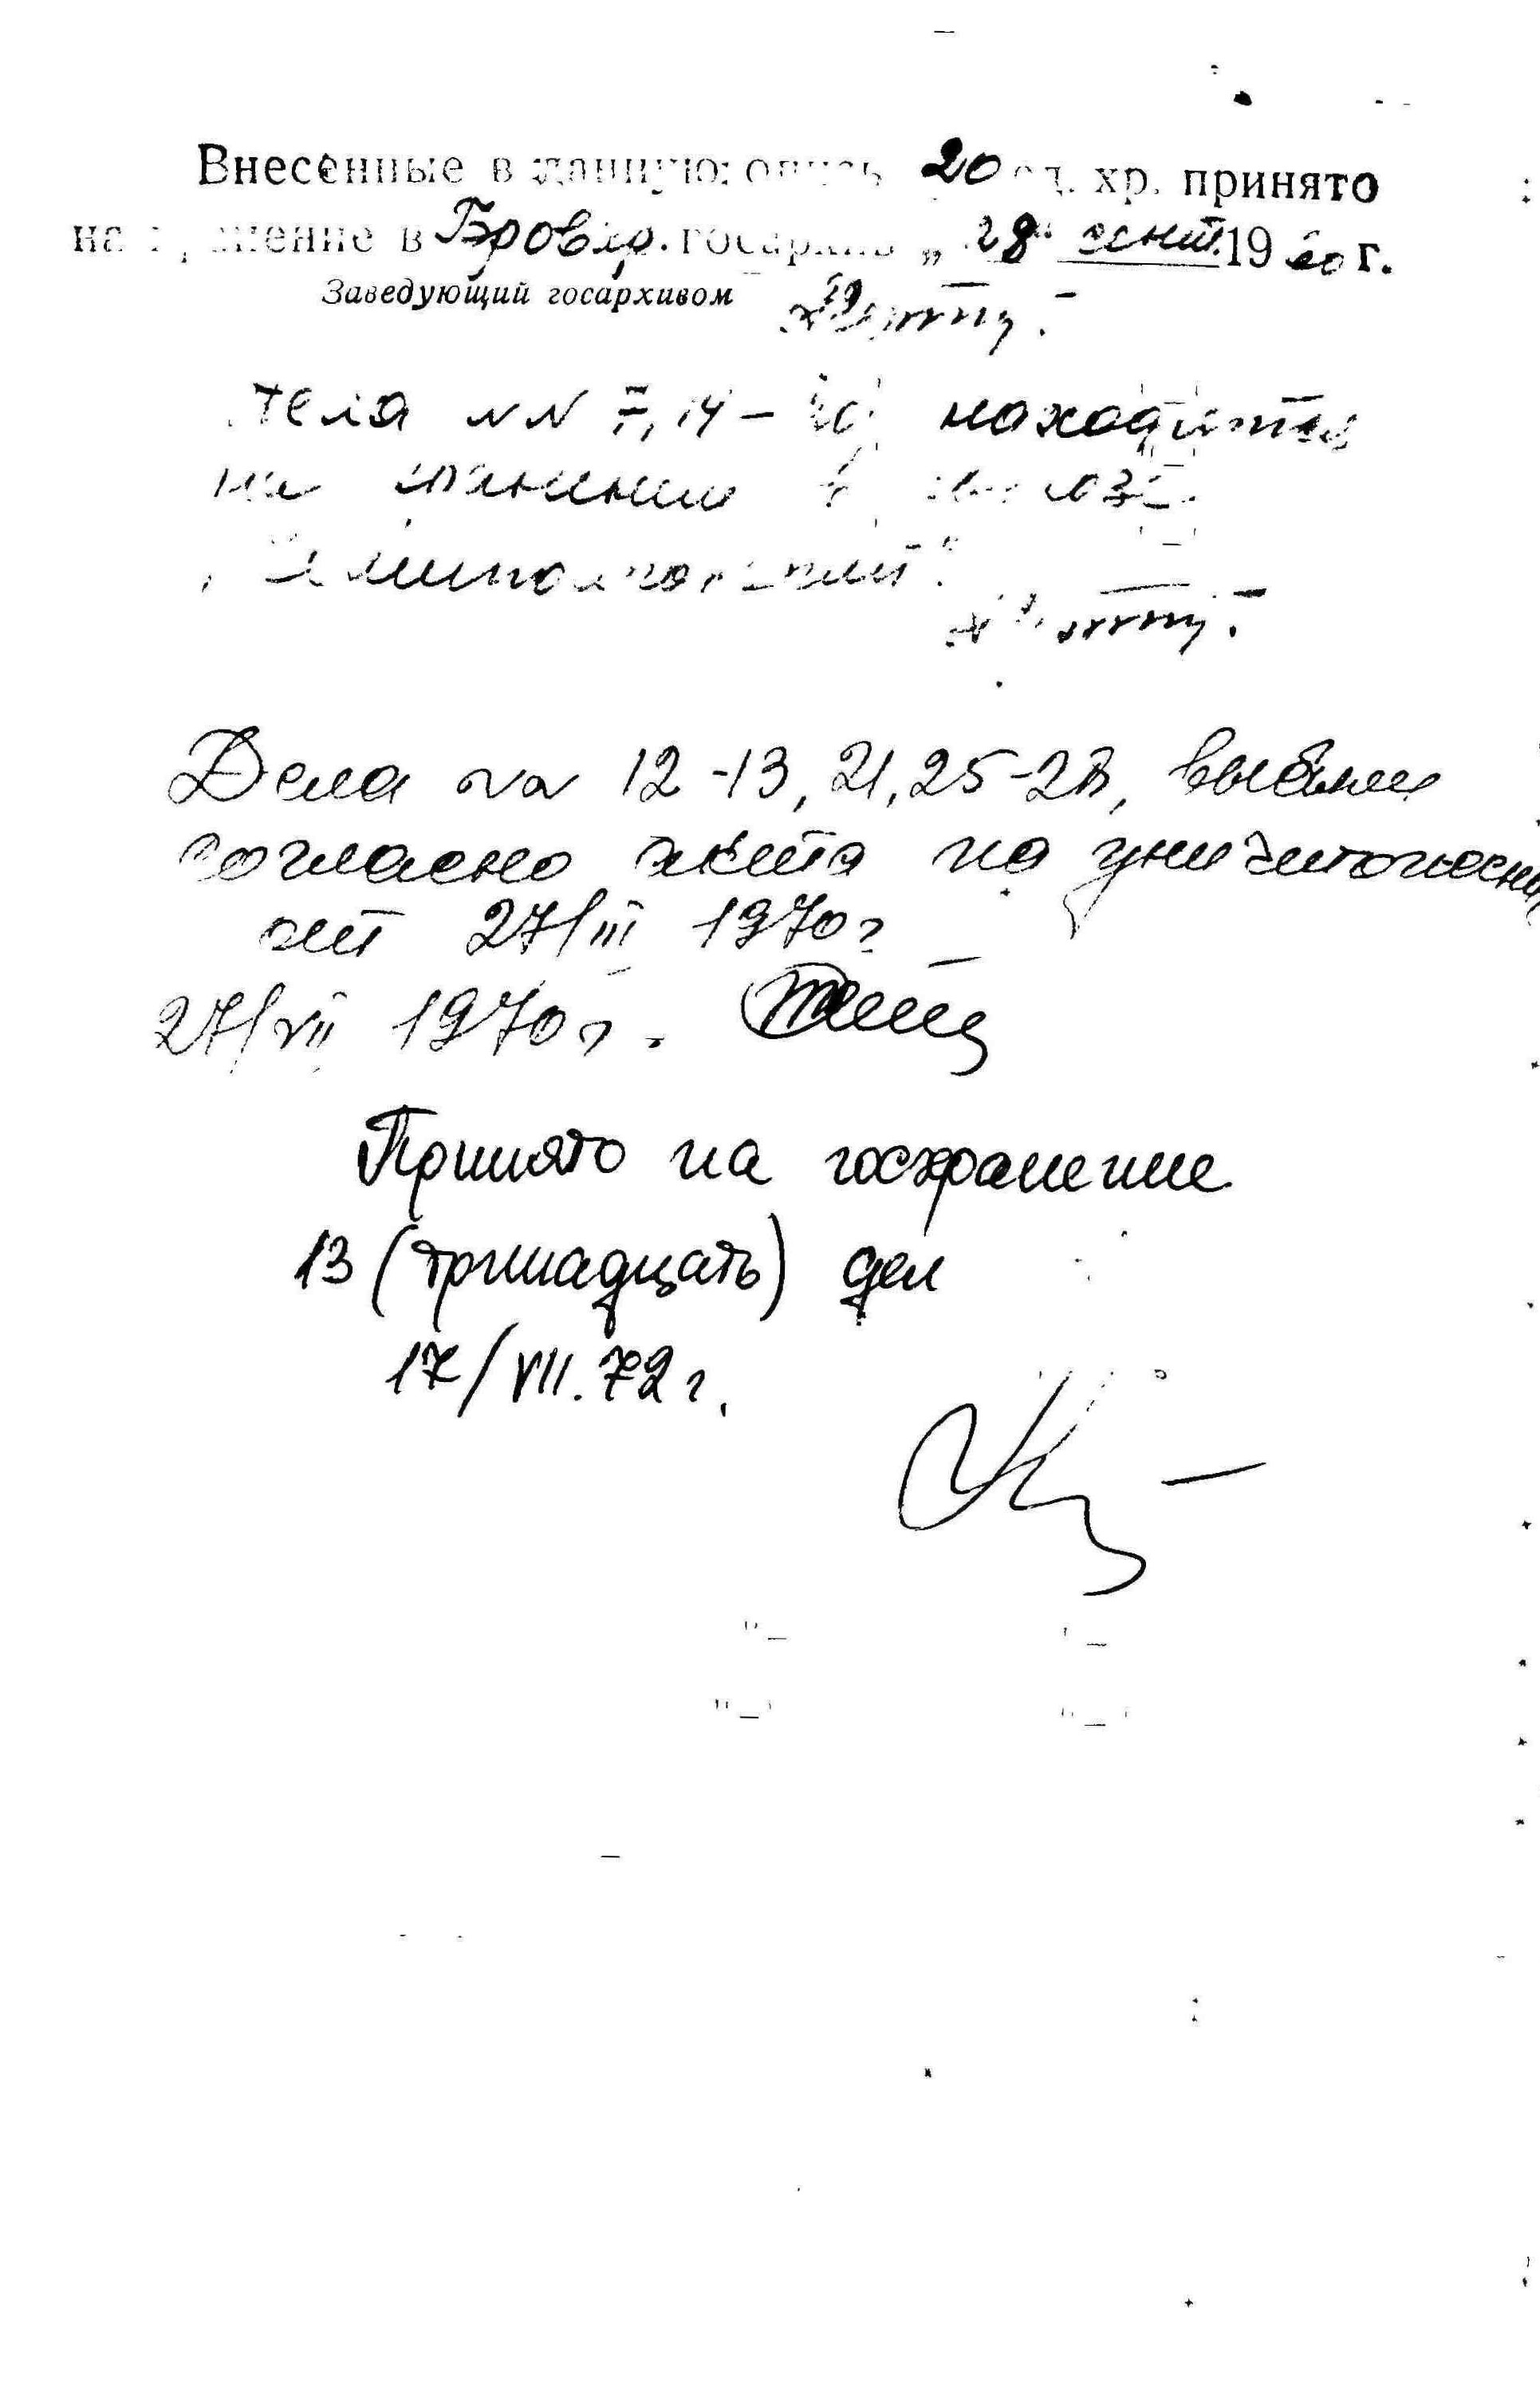 Внесенные в данную опись 20 ед. хр. принято
на хранение в Бровар. госархив „28" сент. 1960 г.
Заведующий госархивом
дела NN 7, 14 - находятся
на хранении в
Дела NN 12-13, 21, 25-28, выбыли
согласно акта на уничтожение
от 27/III 1970 г
27/VII 1970 г.
Принято на госхранение
13 (тринадцать) дел
17/VII.72 г.